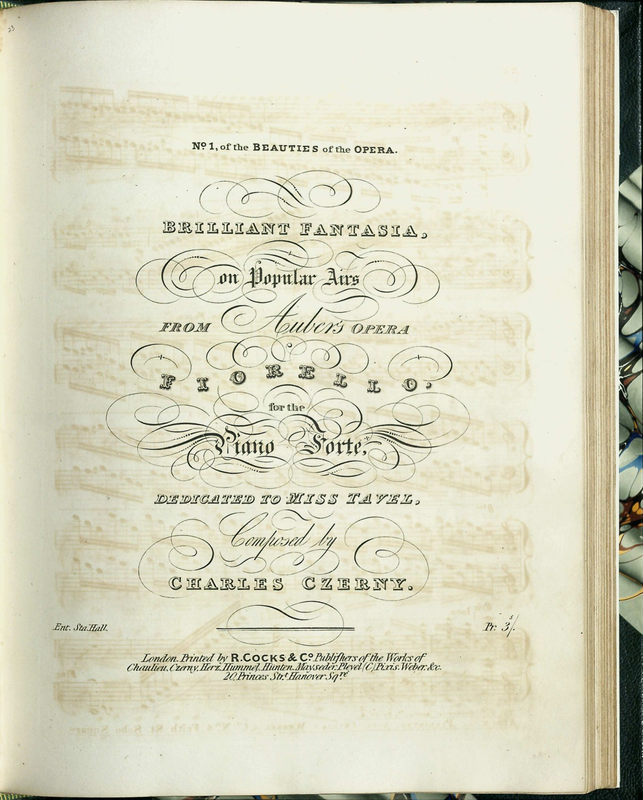 25
Nº 1, of the BEAUTIES of the OPERA.
BRILLIANT FANTASIA,
on Popular Airs
FROM Aubers OPERA
FIORELLO,
for the
Piano Forte,
DEDICATED TO MISS TAVEL,
Composed by
CHARLES CZERNY.
Ent. Sta. Hall.
Pr. 3/.
London. Printed by R. COCKS & Cº. Publishers of the Works of
Chaulieu, Czerny, Herz, Hummel, Hunten, Mayseder, Pleyel, (C) Pixis, Weber, &c.
20, Princes Strt. Hanover Sqre.